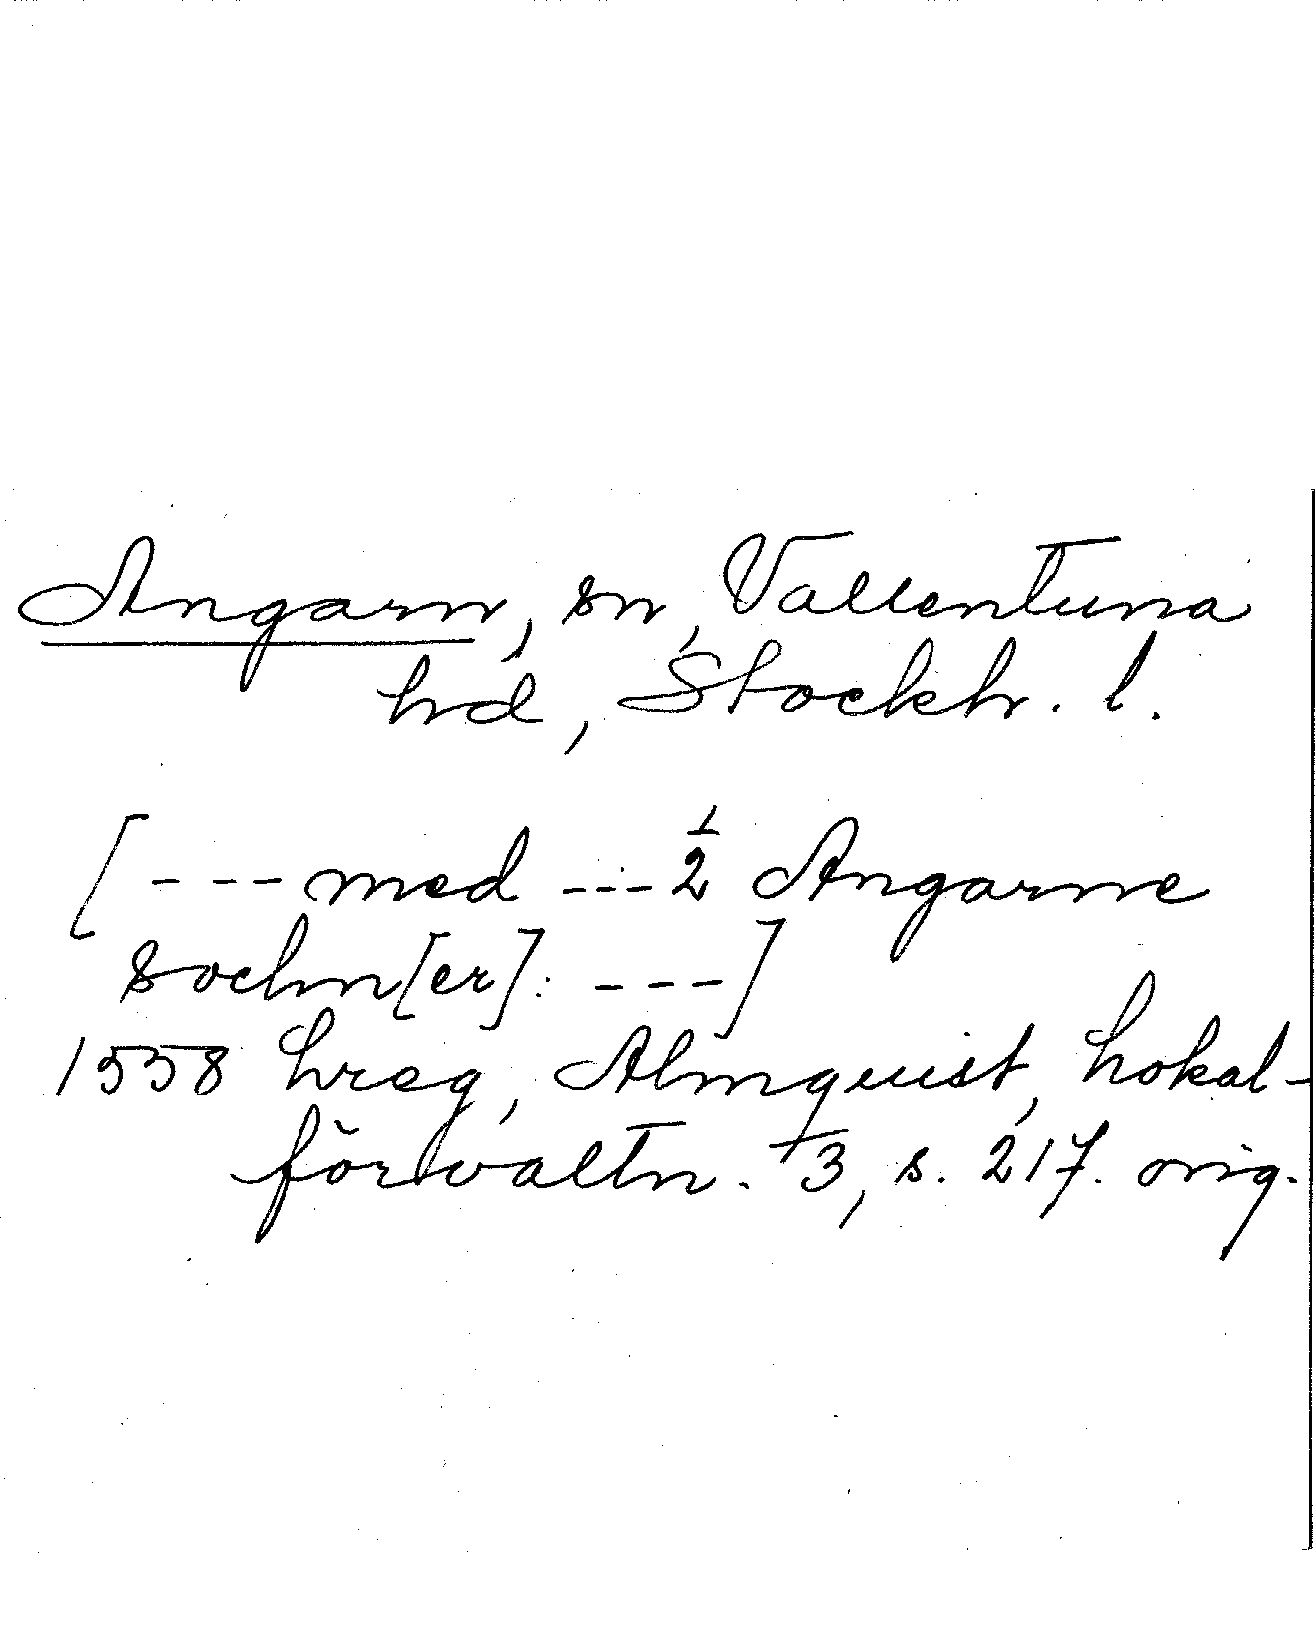 Angarn, sn, Vallentuna
hd, Stockh. l.
[ --- med --- 1/2 Angarne
sochn[er]: --- ]
1558 hreg, Almquist, Lokal-
förvaltn. 3, s. 217. orig.